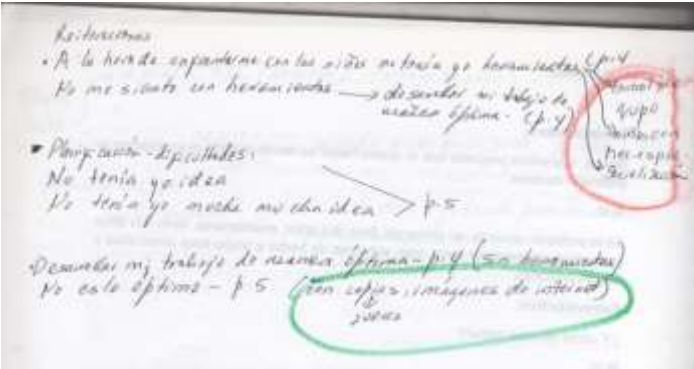 Reiteraciones
• A la hora de enfrentarme con los niños no tenía yo herramientas (p.4
No me siento con herramientas → desarrollar mi trabajo de
manera óptima - (p.4)
grupo
Socialización
• Planificación - dificultades:
No tenía yo idea
No tenía yo mucha mucha idea > p.5
Desarrollar mi trabajo de manera óptima - p.4 (sin herramientas)
No es lo óptimo - p.5 (con copias, imágenes de internet)